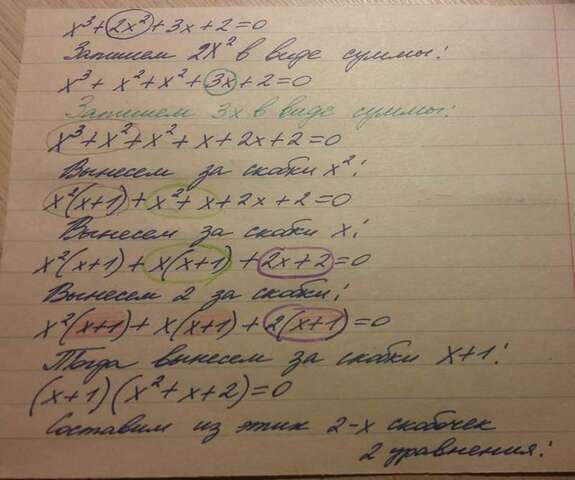 x³ + 2x² + 3x + 2 = 0
Запишем 2x² в виде суммы:
x³ + x² + x² + 3x + 2 = 0
Запишем 3x в виде суммы:
x³ + x² + x² + x + 2x + 2 = 0
Вынесем за скобки x²:
x²(x+1) + x² + x + 2x + 2 = 0
Вынесем за скобки x:
x²(x+1) + x(x+1) + 2x + 2 = 0
Вынесем 2 за скобки:
x²(x+1) + x(x+1) + 2(x+1) = 0
Тогда вынесем за скобки x+1:
(x+1)(x² + x + 2) = 0
Составим из этих 2-х скобочек
2 уравнения: